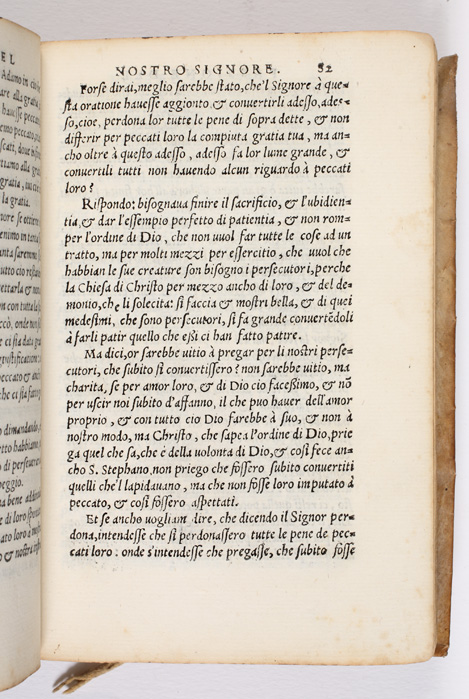 EL
Adamo in ciò
NOSTRO SIGNORE. 82
Forse dirai, meglio sarebbe stato, che'l Signore à que-
sta oratione hauesse aggionto & conuertirli adesso, ades-
so, cioe, perdona lor tutte le pene di sopra dette, & non
differir per peccati loro la compiuta gratia tua, ma an-
cho oltre à questo adesso, adesso fa lor lume grande, &
conuertili tutti non hauendo alcun riguardo à peccati
loro?
Rispondo: bisognaua finire il sacrificio, & l'ubidien-
tia, & dar l'essempio perfetto di patientia, & non rom-
per l'ordine di Dio, che non uuol far tutte le cose ad un
tratto, ma per molti mezzi per essercitio, che uuol che
habbian le sue creature son bisogno i persecutori, perche
la Chiesa di Christo per mezzo ancho di loro, & del de-
monio, che li solecita: si faccia & mostri bella, & di quei
medesimi, che sono persecutori, si fa grande conuertẽdoli
à farli patir quello che eßi ci han fatto patire.
Ma dici, or sarebbe uitio à pregar per li nostri perse-
cutori, che subito si conuertissero? non sarebbe uitio, ma
charita, se per amor loro, & di Dio cio faceßimo, & nõ
per uscir noi subito d'affanno, il che puo hauer dell'amor
proprio, & con tutto cio Dio farebbe à suo, & non à
nostro modo, ma Christo, che sapea l'ordine di Dio, prie
ga quel che sa, che è della uolonta di Dio, & così fece an-
cho S. Stephano, non priego che fossero subito conuertiti
quelli che'l lapidauano, ma che non fosse loro imputato à
peccato, & così fossero aspettati.
Et se ancho uogliam dire, che dicendo il Signor per-
dona, intendesse che si perdonassero tutte le pene de pec-
cati loro: onde s'intendesse che pregasse, che subito fosse